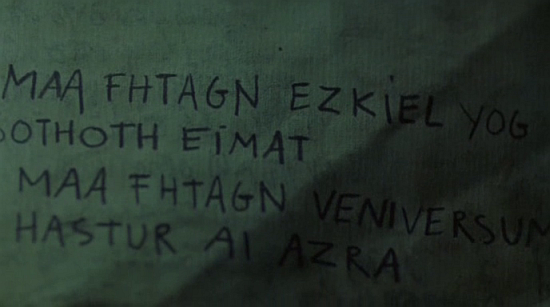 MAA FHTAGN EZKIEL YOG
OTHOTH EIMAT
MAA FHTAGN VENIVERSUM
HASTUR AI AZRA